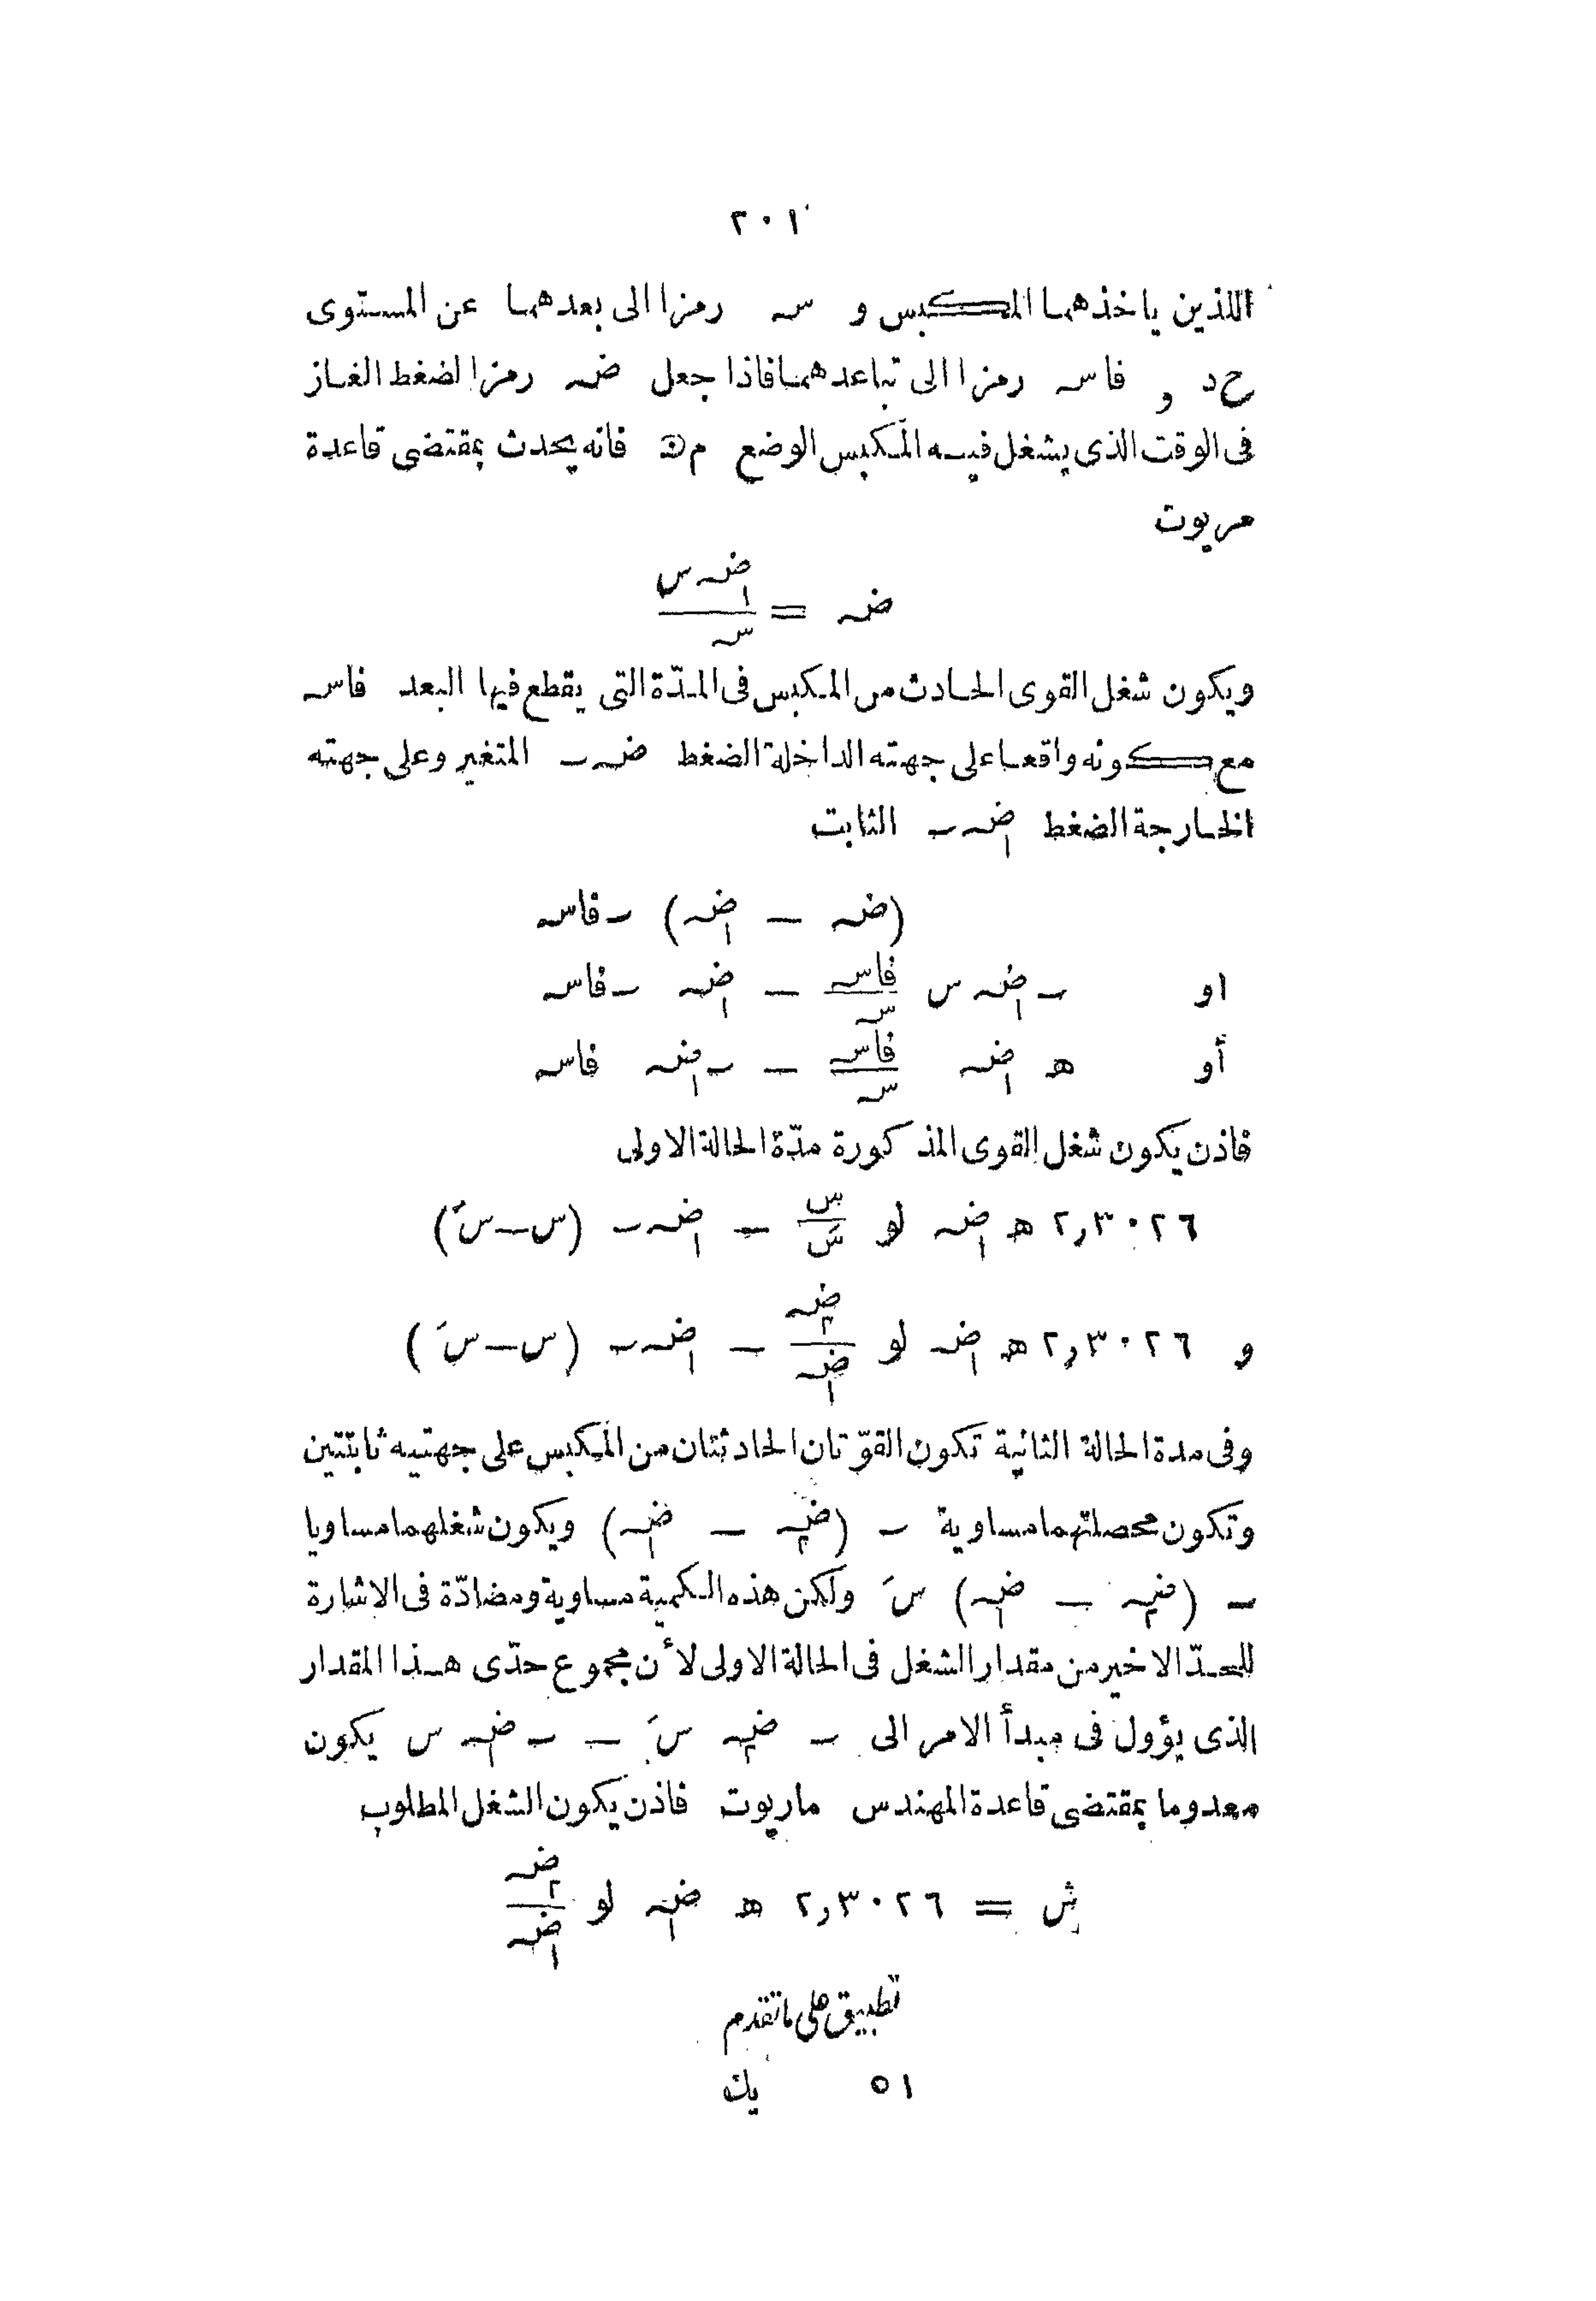 ٢٠١
اللذين ياخذهما المكبس و سه رمزا الى بعدهما عن المستوى
ح د و فاسه رمزا الى تباعدهما فاذا جعل ضه رمزا لضغط الغاز
فى الوقت الذى يشغل فيه المكبس الوضع م ن فانه يحدث بمقتضى قاعدة
مريوت
ضه = ضه١ س / سه
ويكون شغل القوى الحادث من المكبس فى المدّة التى يقطع فيها البعد فاسه
مع كونه واقعا على جهته الداخلة الضغط ضه ـ المتغير وعلى جهته
الخارجة الضغط ضه١ ـ الثابت
(ضه — ضه١) ـ فاسه
او ـ ضه١ س فاسه / سه — ضه١ ـ فاسه
أو ه ضه١ فاسه / سه — ـ ضه١ فاسه
فاذن يكون شغل القوى المذكورة مدّة الحالة الاولى
٢,٣٠٢٦ ه ضه١ لو س / سَ — ضه١ ـ (س — سَ)
و ٢,٣٠٢٦ ه ضه١ لو ضه٢ / ضه١ — ضه١ ـ (س — سَ)
وفى مدة الحالة الثانية تكون القوّتان الحادثتان من المكبس على جهتيه ثابتتين
وتكون محصلتهما مساوية ـ (ضه٢ — ضه١) ويكون شغلهما مساويا
ـ (ضه٢ — ضه١) سَ ولكن هذه الكمية مساوية ومضادّة فى الاشارة
للحدّ الاخير من مقدار الشغل فى الحالة الاولى لأن مجموع حدّى هذا المقدار
الذى يؤول فى مبدأ الامر الى ـ ضه٢ سَ — ـ ضه١ س يكون
معدوما بمقتضى قاعدة المهندس ماريوت فاذن يكون الشغل المطلوب
ش = ٢,٣٠٢٦ ه ضه١ لو ضه٢ / ضه١
تطبيق على ماتقدم
٥١ يك